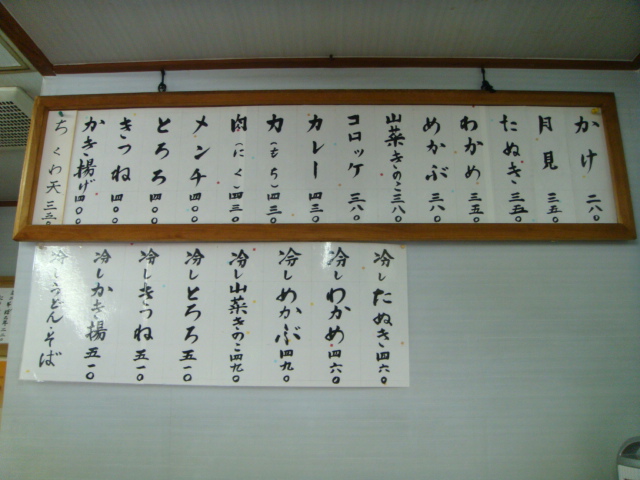 かけ 二八〇
月見 三五〇
たぬき 三五〇
わかめ 三五〇
めかぶ 三八〇
山菜きのこ 三八〇
コロッケ 三八〇
カレー 四三〇
力(もち) 四三〇
肉(にく) 四三〇
メンチ 四〇〇
とろろ 四〇〇
きつね 四〇〇
かき揚げ 四〇〇
ちくわ天 三五〇
冷したぬき 四六〇
冷しわかめ 四六〇
冷しめかぶ 四九〇
冷し山菜きのこ 四九〇
冷しとろろ 五一〇
冷しきつね 五一〇
冷しかき揚 五一〇
冷しうどん・そば